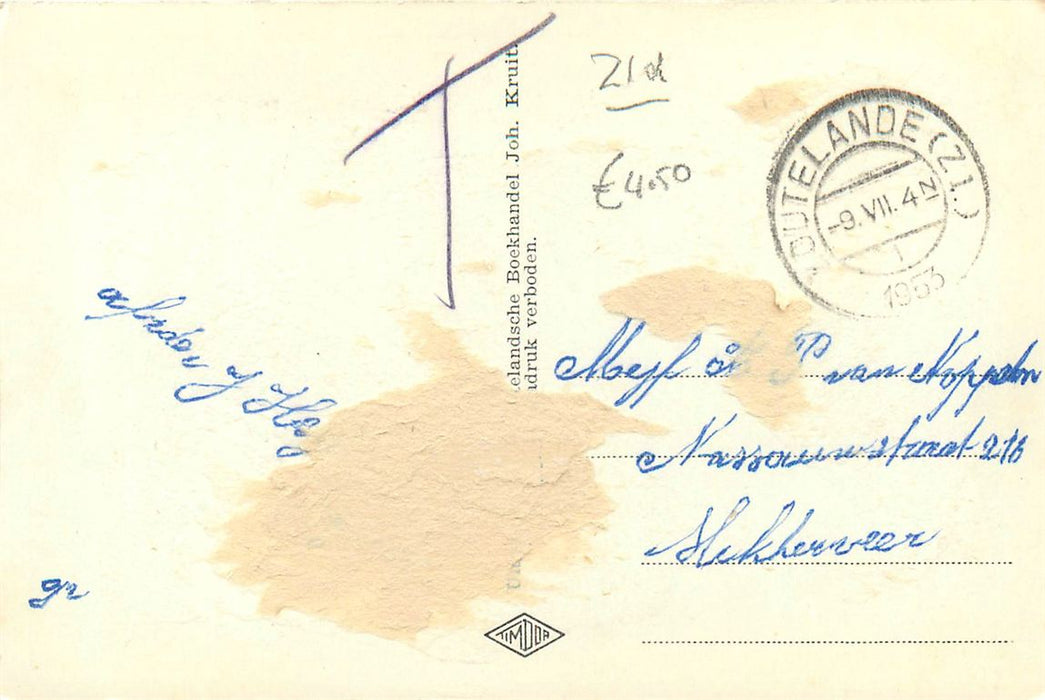 T
21d
€4.50
OUTELANDE (Zl.)
-9.VII.4 N
1
1953
elandsche Boekhandel Joh. Kruit.
adruk verboden.
afzder J
Mejf P van Koppeln
Nassauwstraat 216
Hekkerveer
gr
TIMDOR